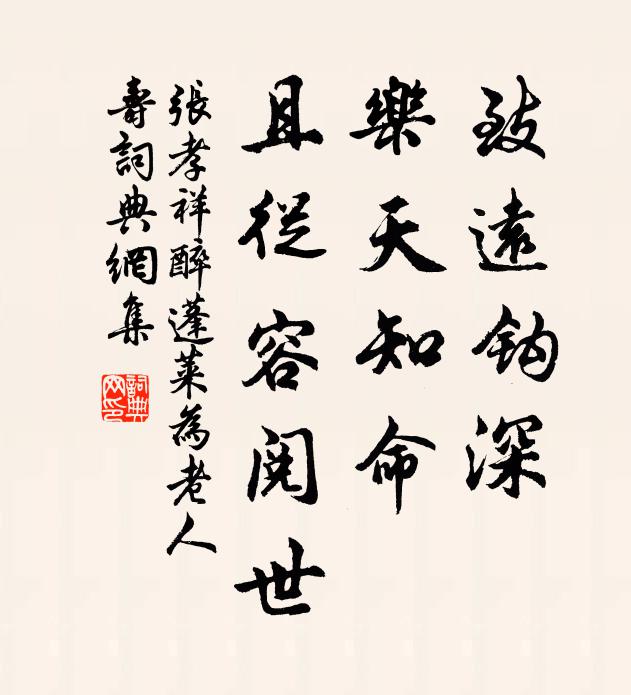 致遠鈎深
樂天知命
且從容閱世
張孝祥醉蓬萊為老人
壽詞典網集
詞典
网印